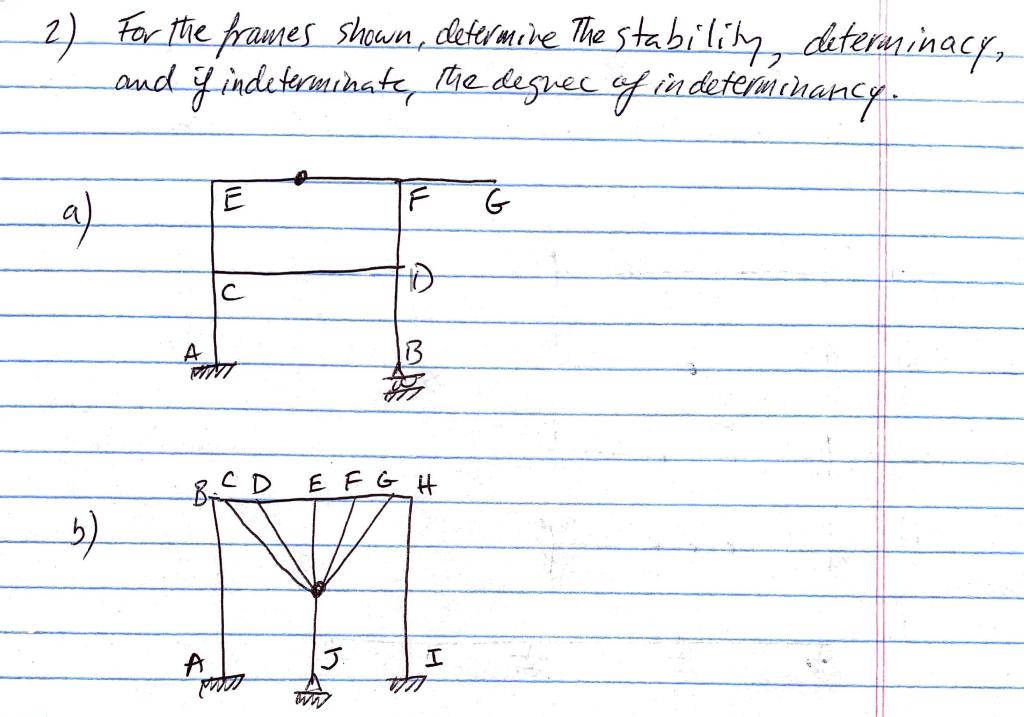 2) For the frames shown, determine the stability, determinacy,
and if indeterminate, the degree of indeterminancy.
a)
E F G
C D
A B
b)
B C D E F G H
A J I